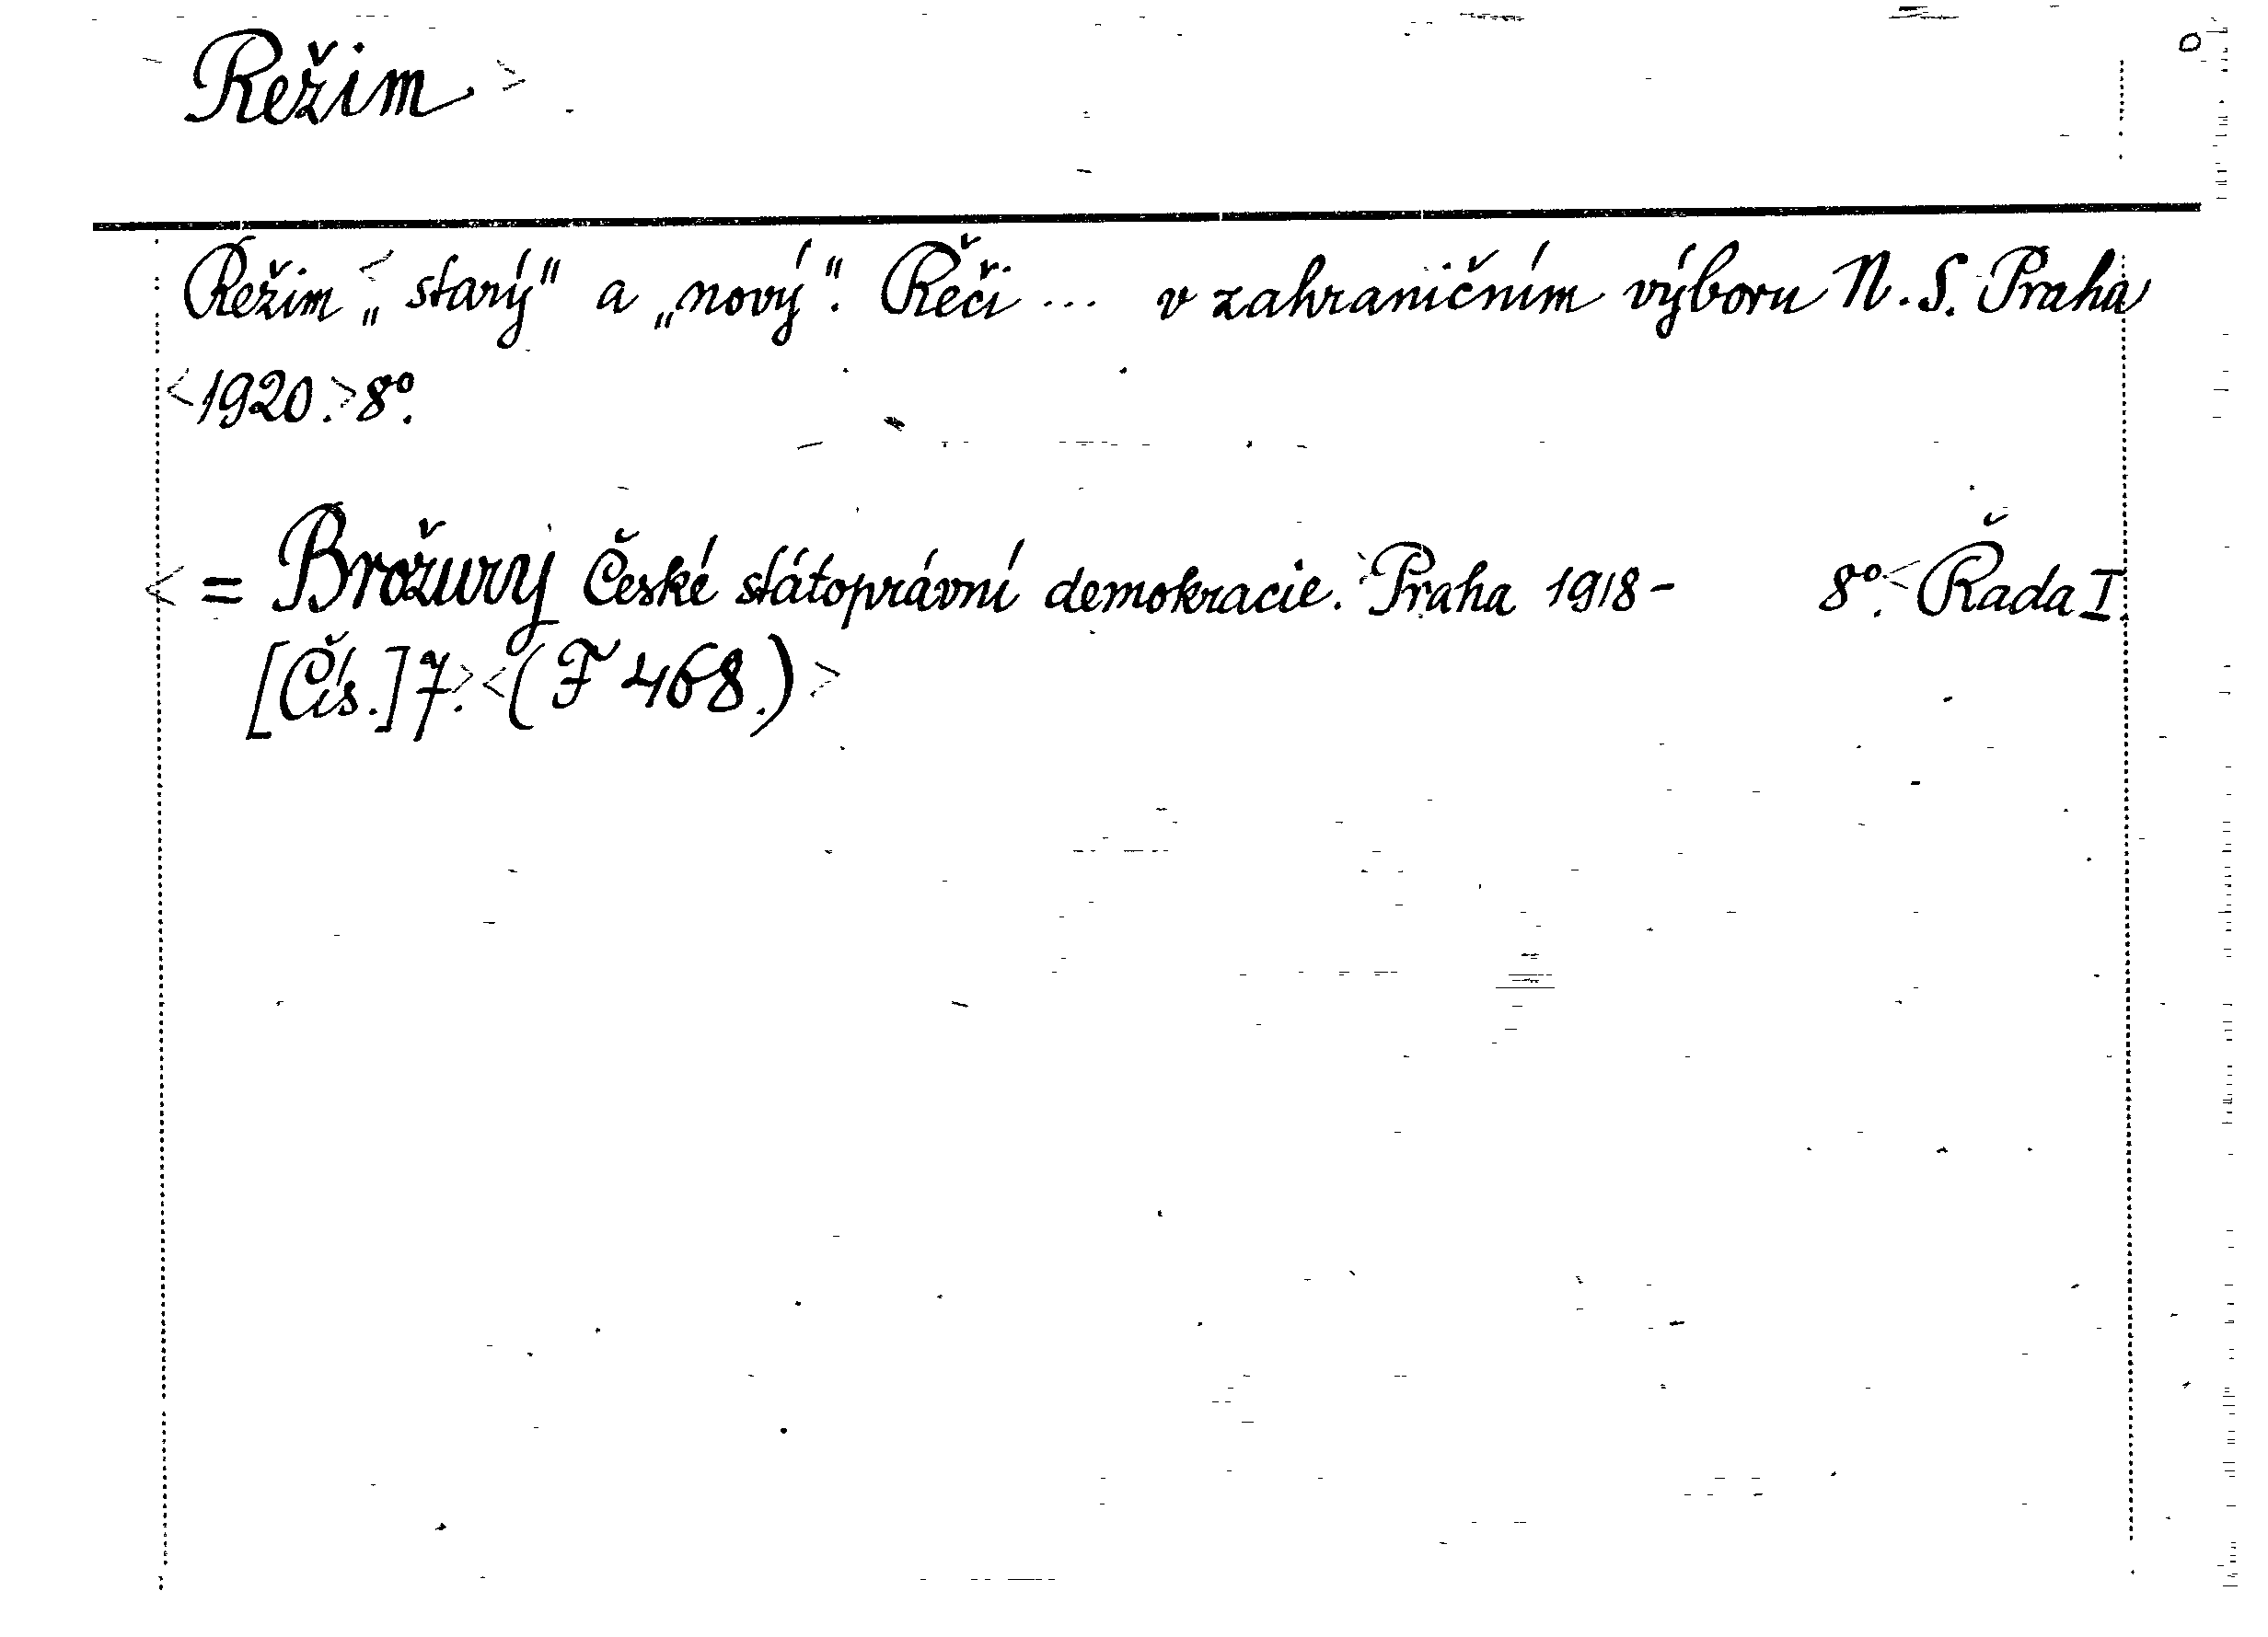 Režim >
Režim < „starý" a „nový". Řeči ... v zahraničním výboru N. S. Praha
<1920.> 8°.
< = Brožury České státoprávní demokracie. Praha 1918- 8°. < Řada I.
[Čís.] 7. > < (F 468.) >